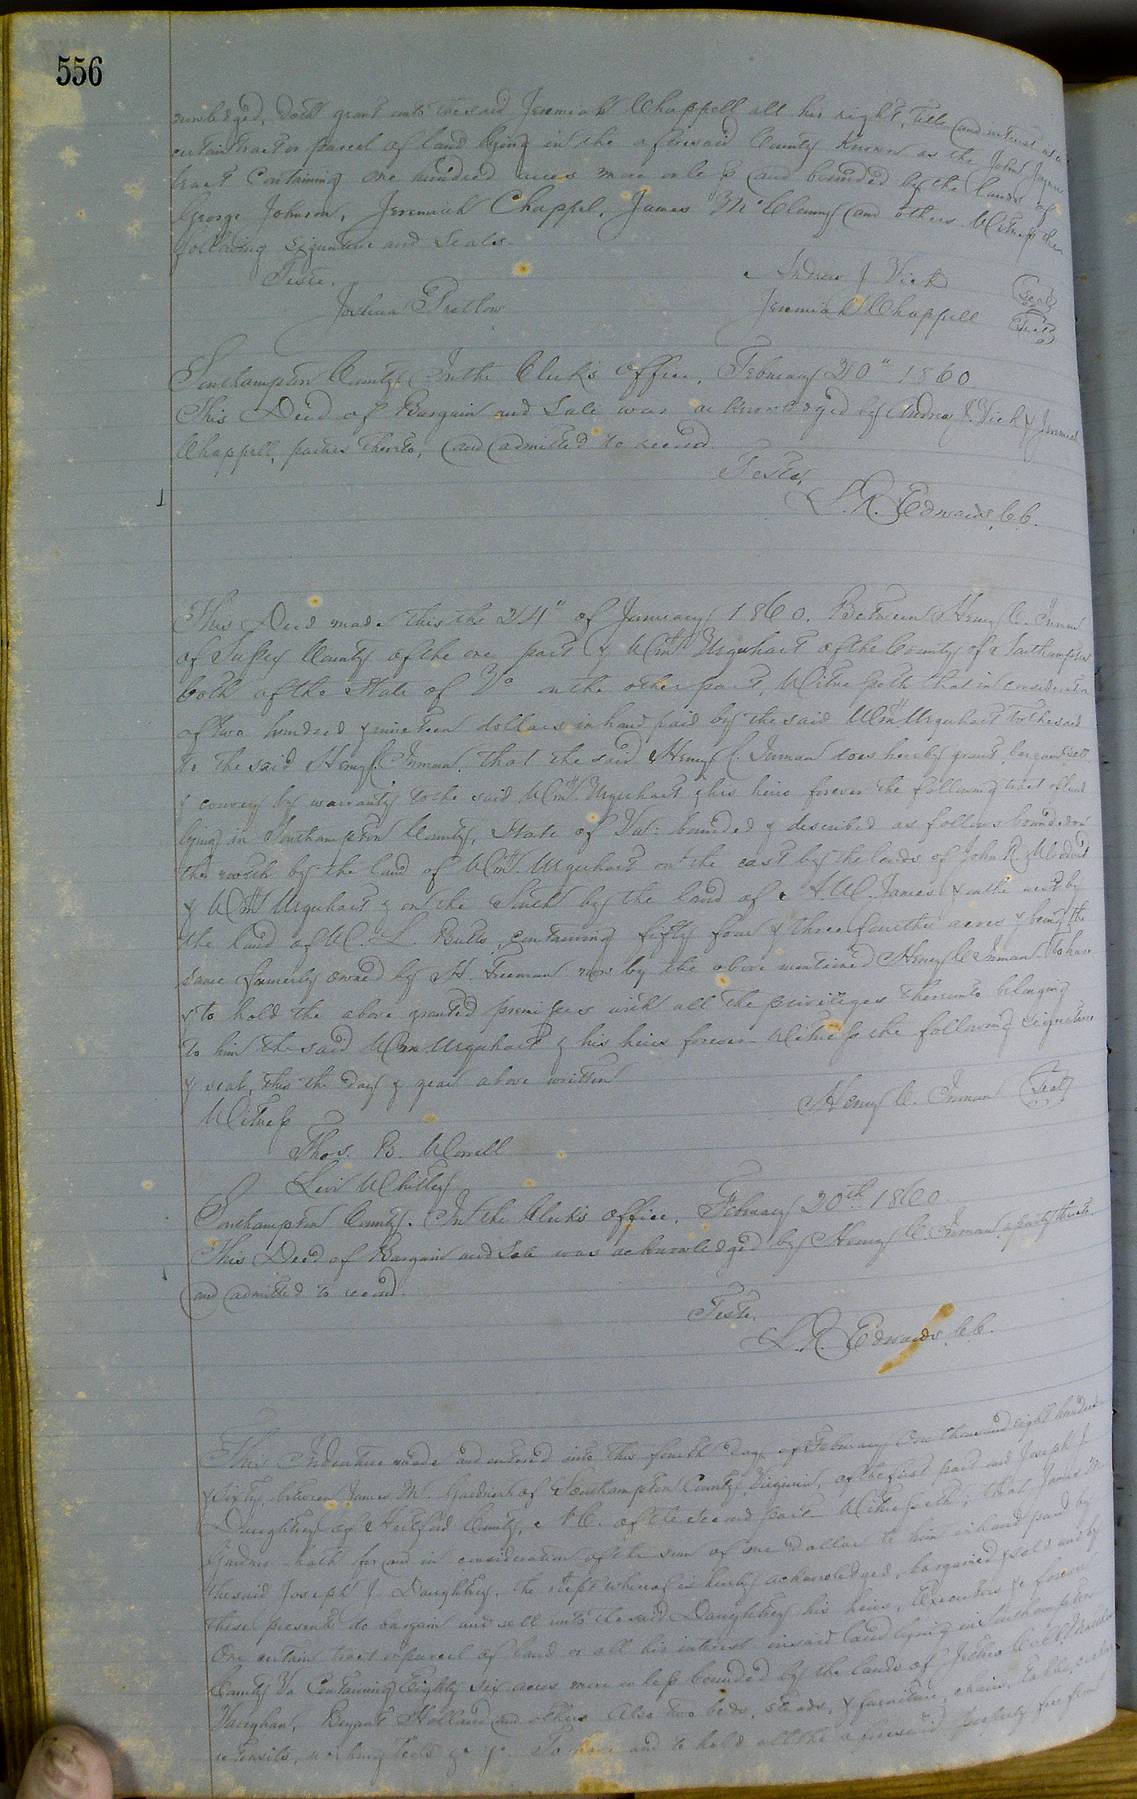 556
nowledged, doth grant unto the said Jeremiah Chappell all his right, title and interest as a
certain tract or parcel of land lying in the aforesaid County known as the John
tract Containing One hundred acres more or less and bounded by the lands of
George Johnson, Jeremiah Chappel, James McClenny and others. Witness the
following signature and seals.
Teste.
Andrew J Vick Seal
Joshua Pretlow
Jeremiah Chappell Seal
Southampton County, In the Clerk's office, February 20" 1860
This Deed of Bargain and Sale was acknowledged by Andrew J. Vick & Jeremiah
Chappell, parties thereto, and admitted to record.
Teste,
L. R. Edwards, CC.
This Deed made this the 24" of January 1860. Between Henry C. Inman
of Sussex County of the one part & Wm H Urquhart of the County of Southampton
both of the State of Va on the other part, Witnesseth that in consideration
of two hundred & nineteen dollars in hand paid by the said Wm H Urquhart to the said
to the said Henry C. Inman, that the said Henry C. Inman does hereby grant, bargain sell
& convey by warranty to the said Wm H Urquhart & his heirs forever the following tract of land
lying in Southampton County, State of Va: bounded & described as follows bounded on
the north by the land of Wm H Urquhart on the east by the lands of John R.
& Wm H Urquhart & on the South by the land of A. W. James & on the west by
the land of W. L. Butts, containing fifty four & three fourths acres & being the
same formerly owned by H. Freeman now by the above mentioned Henry C Inman. To have
& to hold the above granted premises with all the privileges thereunto belonging
to him the said Wm Urquhart & his heirs forever - Witness the following signature
& seal, this the day & year above written
Henry C. Inman Seal
Witness
Thos. B. Worrell
Levi Whitley
Southampton County. In the Clerk's office, February 20th 1860
This Deed of Bargain and Sale was acknowledged by Henry C. Inman, a party thereto,
and admitted to record.
Teste.
L. R. Edwards CC.
This Indenture made and entered into this fourth day of February One thousand eight hundred
& Sixty, between James M. Gardner of Southampton County Virginia, of the first part and Joseph J
Daughtrey of Hertford County, N C. of the second part Witnesseth; that James M
Gardner hath for and in consideration of the sum of one dollar to him in hand paid by
the said Joseph J. Daughtrey, the receipt whereof is hereby acknowledged, bargained & sold and by
these presents do bargain and sell unto the said Daughtrey his heirs, Executors &c forever
One certain tract or parcel of land or all his interest in said land lying in Southampton
County Va Containing Eighty Six acres more or less bounded by the lands of Jethro
Vaughan, Bryant Holland and others Also two beds, steads, & furniture, chairs, tables,
utensils, working tools &c &c. To have and to hold all the aforesaid property free from